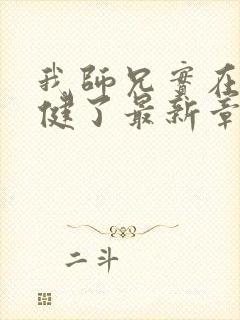 我師兄實在
健了最新章
二斗